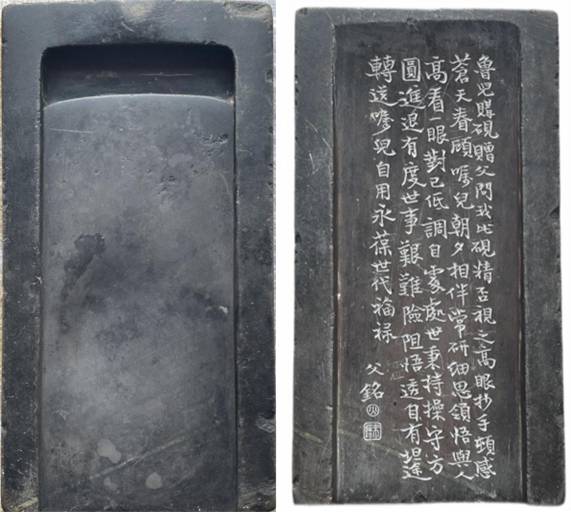 魯兒購硯贈父問我此硯精否視之高眼抄手頓感
蒼天眷顧嚀兒朝夕相伴常研細思領悟與人
高看一眼對己低調自處世秉持操守方
圓進退有度世事艱難險阻悟透自有坦途
轉送嚀兒自用永葆世代福祿
父銘